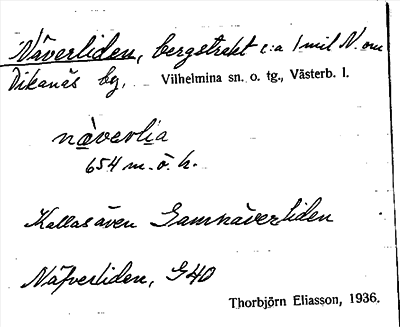 Näverliden, bergstrakt c:a 1 mil N. om
Dikanäs by. Vilhelmina sn. o. tg., Västerb. l.
näverlia
654 m. ö. h.
Kallas även Gamnäverliden
Näfverliden, G40
Thorbjörn Eliasson, 1936.